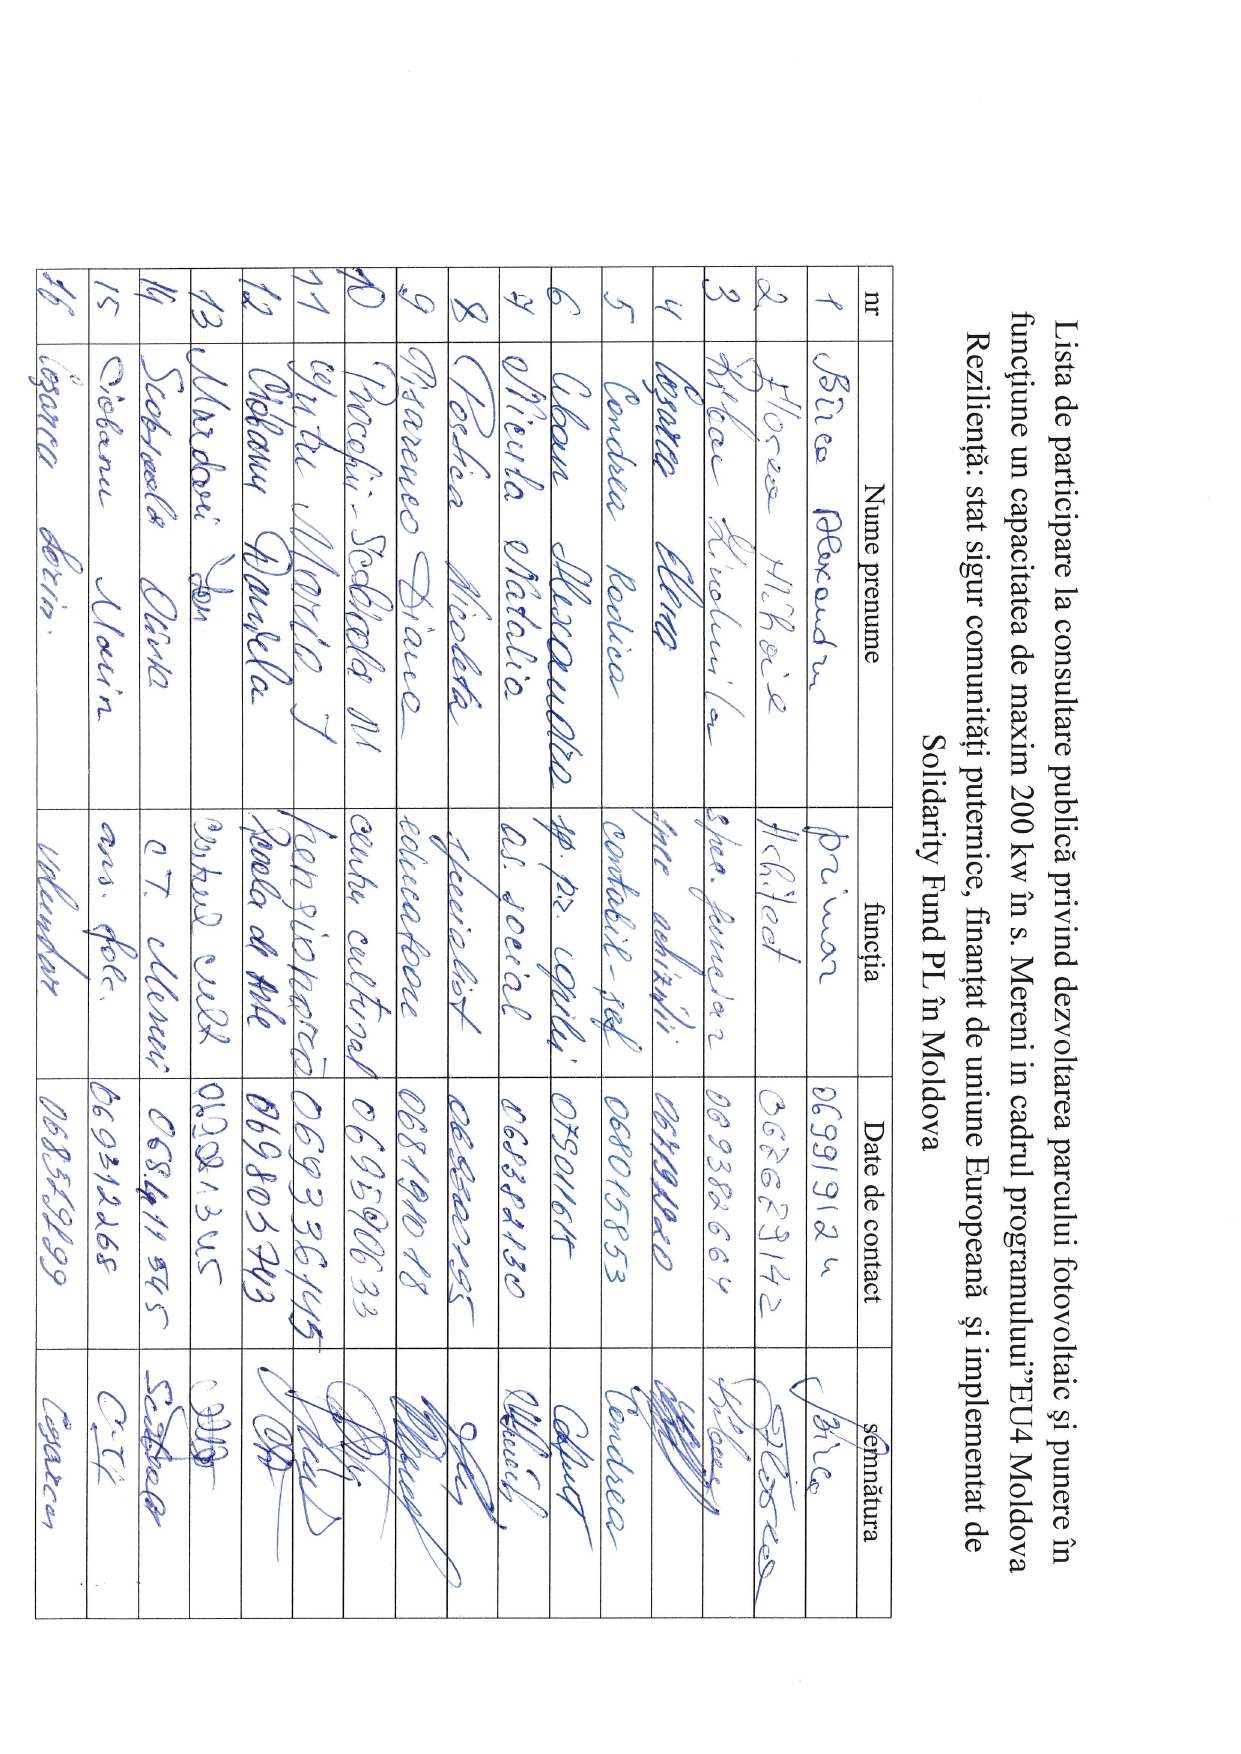 Lista de participare la consultare publică privind dezvoltarea parcului fotovoltaic și punere în
funcțiune un capacitatea de maxim 200 kw în s. Mereni in cadrul programuluui”EU4 Moldova
Reziliență: stat sigur comunități puternice, finanțat de uniune Europeană și implementat de
Solidarity Fund PL în Moldova
nr Nume prenume funcția Date de contact semnătura
1 Bîrca Alexandru primar 069919124 Bîrca
2 Florea Mihaie Arhitect
3 Liudmila spec. funciar 069382664
4 Coșarca Elena spec achiziții 067191920
5 Condrea Rodica contabil-șef 068015853 Condrea
6 Caban Alexandra sp. pr. copilului 079011615
7 Nicula Natalia as. social 068382130
8 Postica Nicoleta specialist
9 Pisarenco Diana educatoare 068191018
10 Procopii-Scobioala M centru cultural 069590633
11 Maria I pensionară 069336145
12 Ciobanu Daniela Școala de Arte 069803743
13 Mardari Ion centrul cult.
14 Scobioala Olivia CT. Mereni 068.411345
15 Ciobanu Marin ans. folc. 069312268
16 Coșarca Sorin. voluntar Coșarca